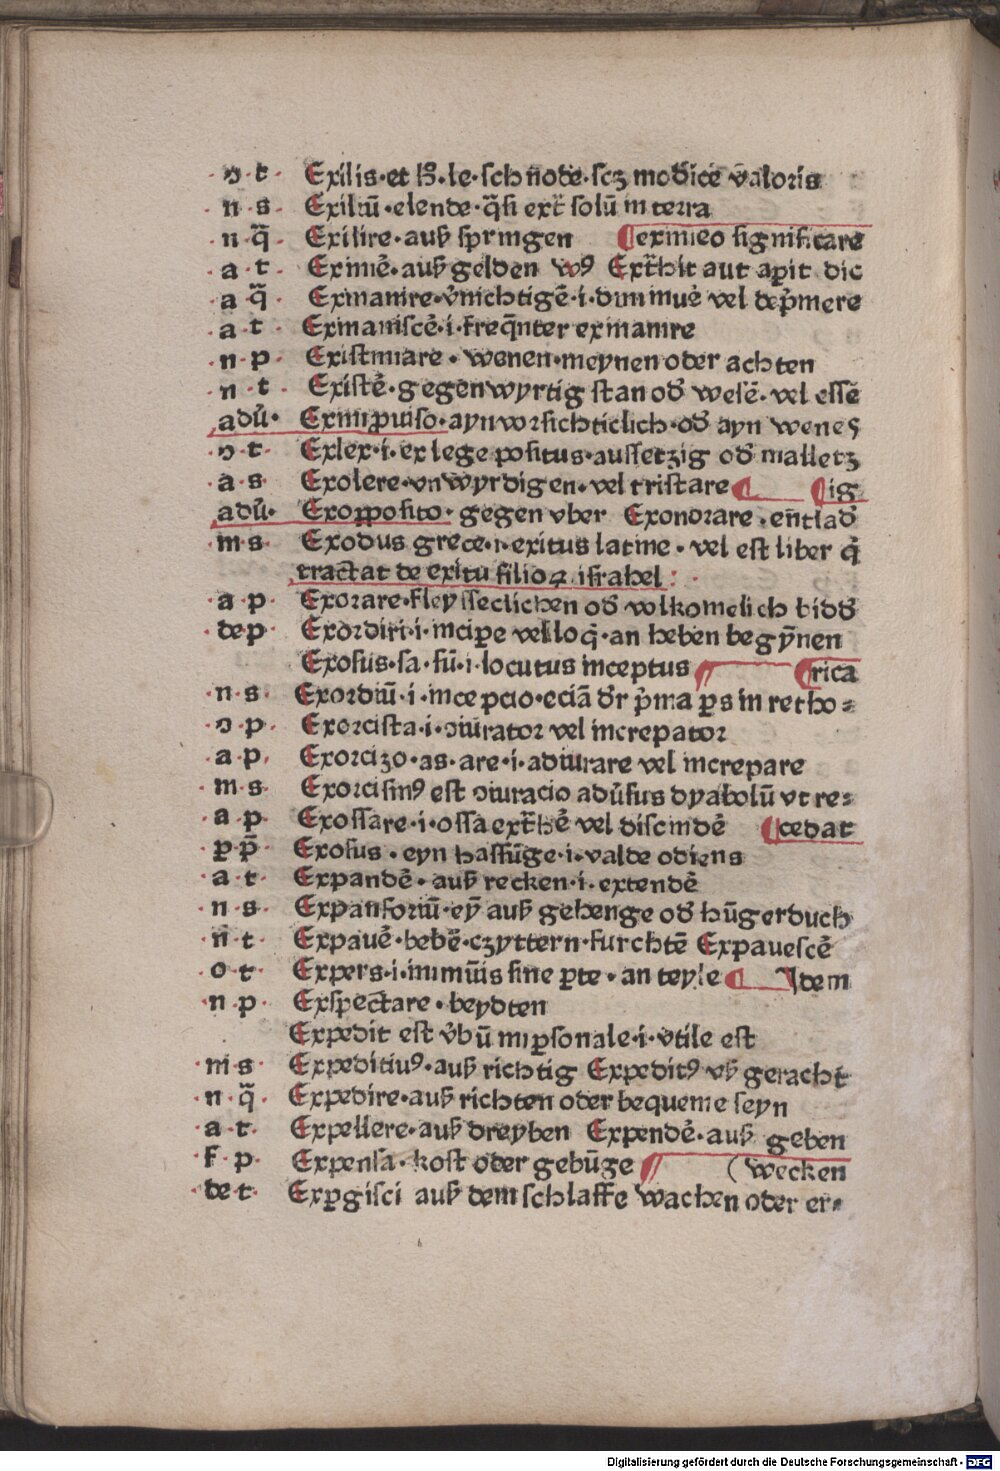 ·ꝯ·t· Exilis·et hꝰ·le·schnöde·scꝫ modice valoris
·n·s· Exiliū·elende·q̄si ext̄ solū in terra
·n·q̄· Exilire·auß springen ¶eximeo significare
·a·t· Eximē·außgelden vꝰ Ext̄hit aut aꝑit dic
·a·q̄· Exinanire·v̄nichtigē·i·diminuē vel dep̄mere
·a·t· Exinaniscē·i·freq̄nter exinanire
·n·p· Existimare·wenen·meynen oder achten
·n·t· Existē·gegenwyrtig stan od̄ wesē·vel essē
adū· Eximꝓuiso·aynvorsichticlich·od̄ ayn wenes
·ꝯ·t· Exlex·i·ex lege positus·aussetzig od̄ malletz
·a·s· Exolere·vnwyrdigen·vel tristare ¶ ¶ig
adū· Exoꝑposito·gegen vber Exonorare·entlad̄
·m·s· Exodus grece·i·exitus latine·vel est liber q̄
tractat de exitu filioꝝ israhel:
·a·p· Exorare·fleysseclichen od̄ volkomelich bidd̄
·de p· Exordiri·i·inciꝑe vel loq̄·an heben begȳnen
Exosus·sa·sū·i·locutus inceptus ¶ ¶rica
·n·s· Exordiū·i·incepcio·eciā dr̄ p̄ma ꝑs in retho-
·ꝯ·p· Exorcista·i·ꝯiurator vel increpator
·a·p· Exorcizo·as·are·i·adiurare vel increpare
·m·s· Exorcismꝰ est ꝯiuracio adūsus dyabolū vt re-
·a·p· Exossare·i·ossa ext̄hē vel discindē ¶cedat
ꝑ·p̄· Exosus·eyn hassūge·i·valde odiens
·a·t· Expandē·auß recken·i·extendē
·n·s· Expansoriū·eȳ auß gehenge od̄ hūgerduch
·n·t· Expauē·bebē·czyttern·furchtē Expauescē
·o·t· Expers·i·inmūis sine ꝑte·an teyle ¶ ¶dem
·n·p· Exspectare·beydten
Expedit est v̄bū inꝑsonale·i·vtile est
·m·s· Expeditiuꝰ·auß richtig Expeditꝰ vß geracht
·n·q̄· Expedire·auß richten oder bequeme seyn
·a·t· Expellere·auß dreyben Expendē·auß geben
·f·p· Expensa·kost oder gebūge ¶ (wecken
·de t· Exꝑgisci auß dem schlaffe wachen oder er-
Digitalisierung gefördert durch die Deutsche Forschungsgemeinschaft - DFG